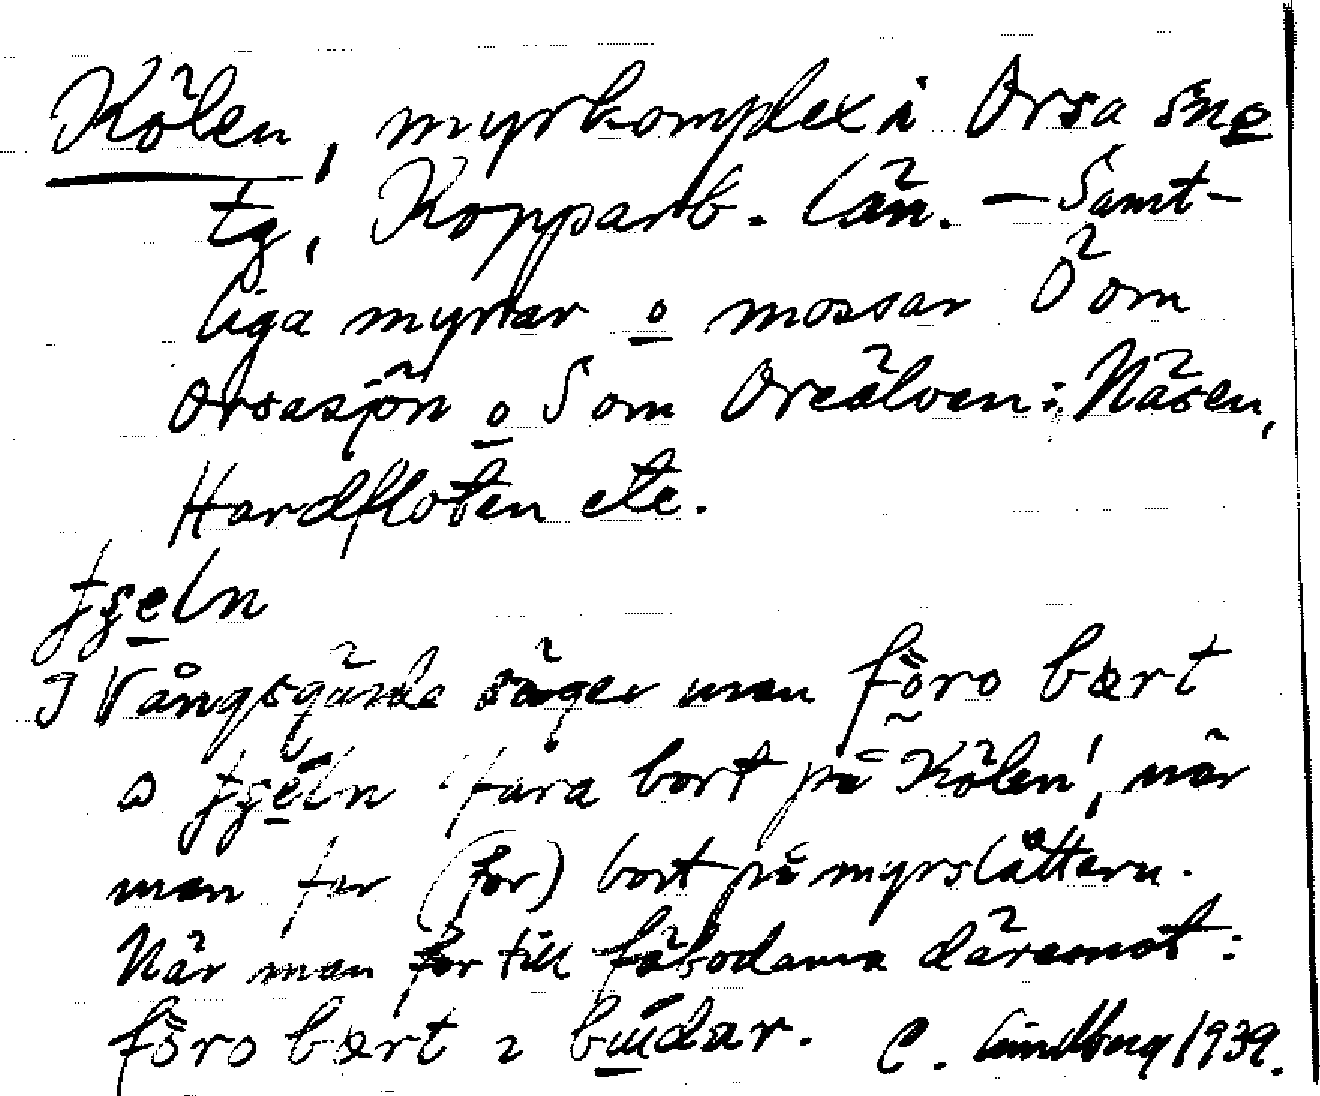 Kölen, myrkomplex i Orsa sn o
tg, Kopparb. län. – Samt-
liga myrar o mossar Ö om
Orsasjön o S om Oreälven: Näsen,
Hardfloten etc.
I Vångsgärde säger man föro bært
'fara bort på Kölen', när
man far (for) bort på myrslåttern.
När man for till fäbodarna däremot:
föro bært i budar. C. Lindberg 1939.